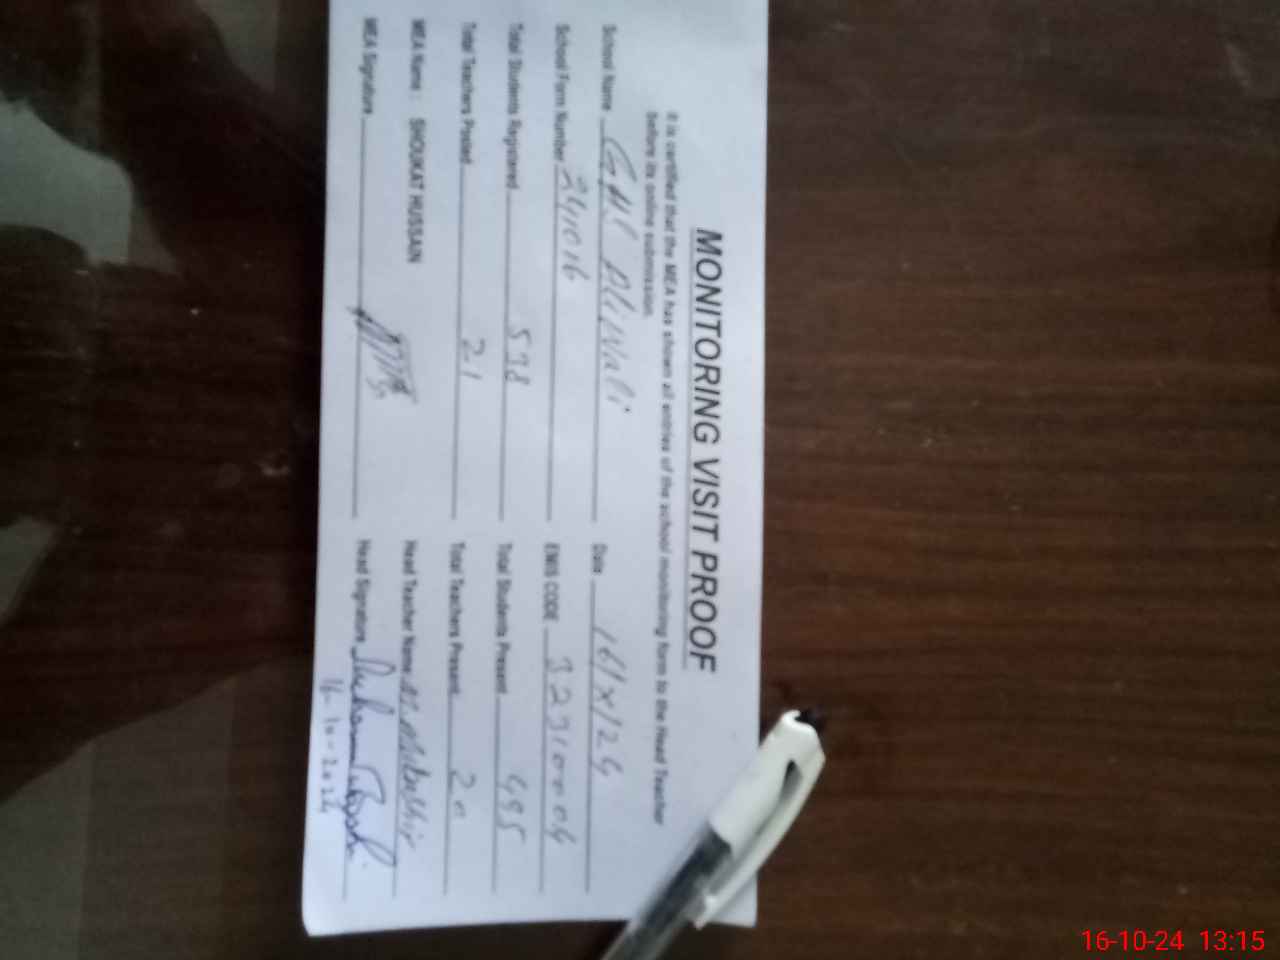 MONITORING VISIT PROOF
It is certified that the MEA has shown all entries of the school monitoring form to the Head Teacher
before its online submission.
School Name GHS Aliwali Date 16/X/24
School Form Number 241016 EMIS CODE 32310004
Total Students Registered 598 Total Students Present 495
Total Teachers Posted 21 Total Teachers Present 20
MEA Name : SHOUKAT HUSSAIN Head Teacher Name
MEA Signature Head Signature
16-10-2024
16-10-24 13:15